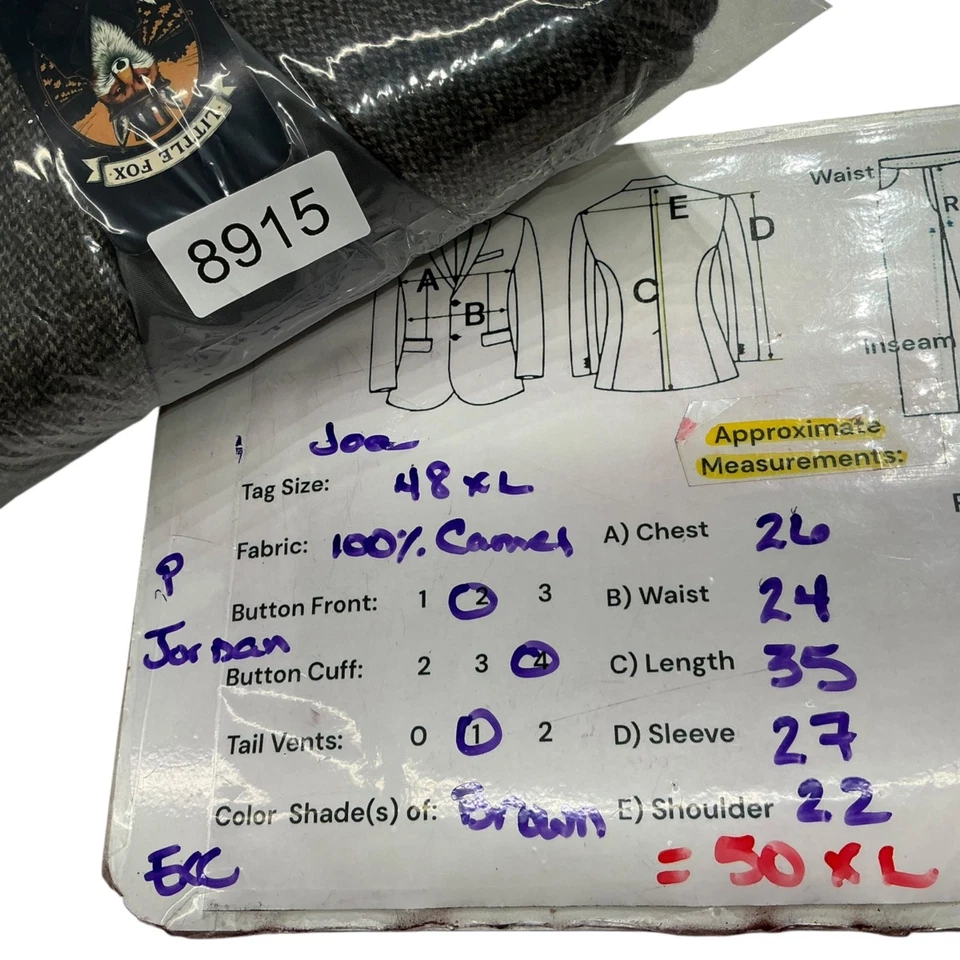 ·LITTLE FOX·
8915
A
B
E
D
C
Waist
R
Inseam
Joe
Approximate
Measurements:
Tag Size: 48 XL
Fabric: 100% Camel
A) Chest 26
P
Jordan
Button Front: 1 2 3
B) Waist 24
Button Cuff: 2 3 4
C) Length 35
Tail Vents: 0 1 2
D) Sleeve 27
Color Shade(s) of: Brown
E) Shoulder 22
= 50 XL